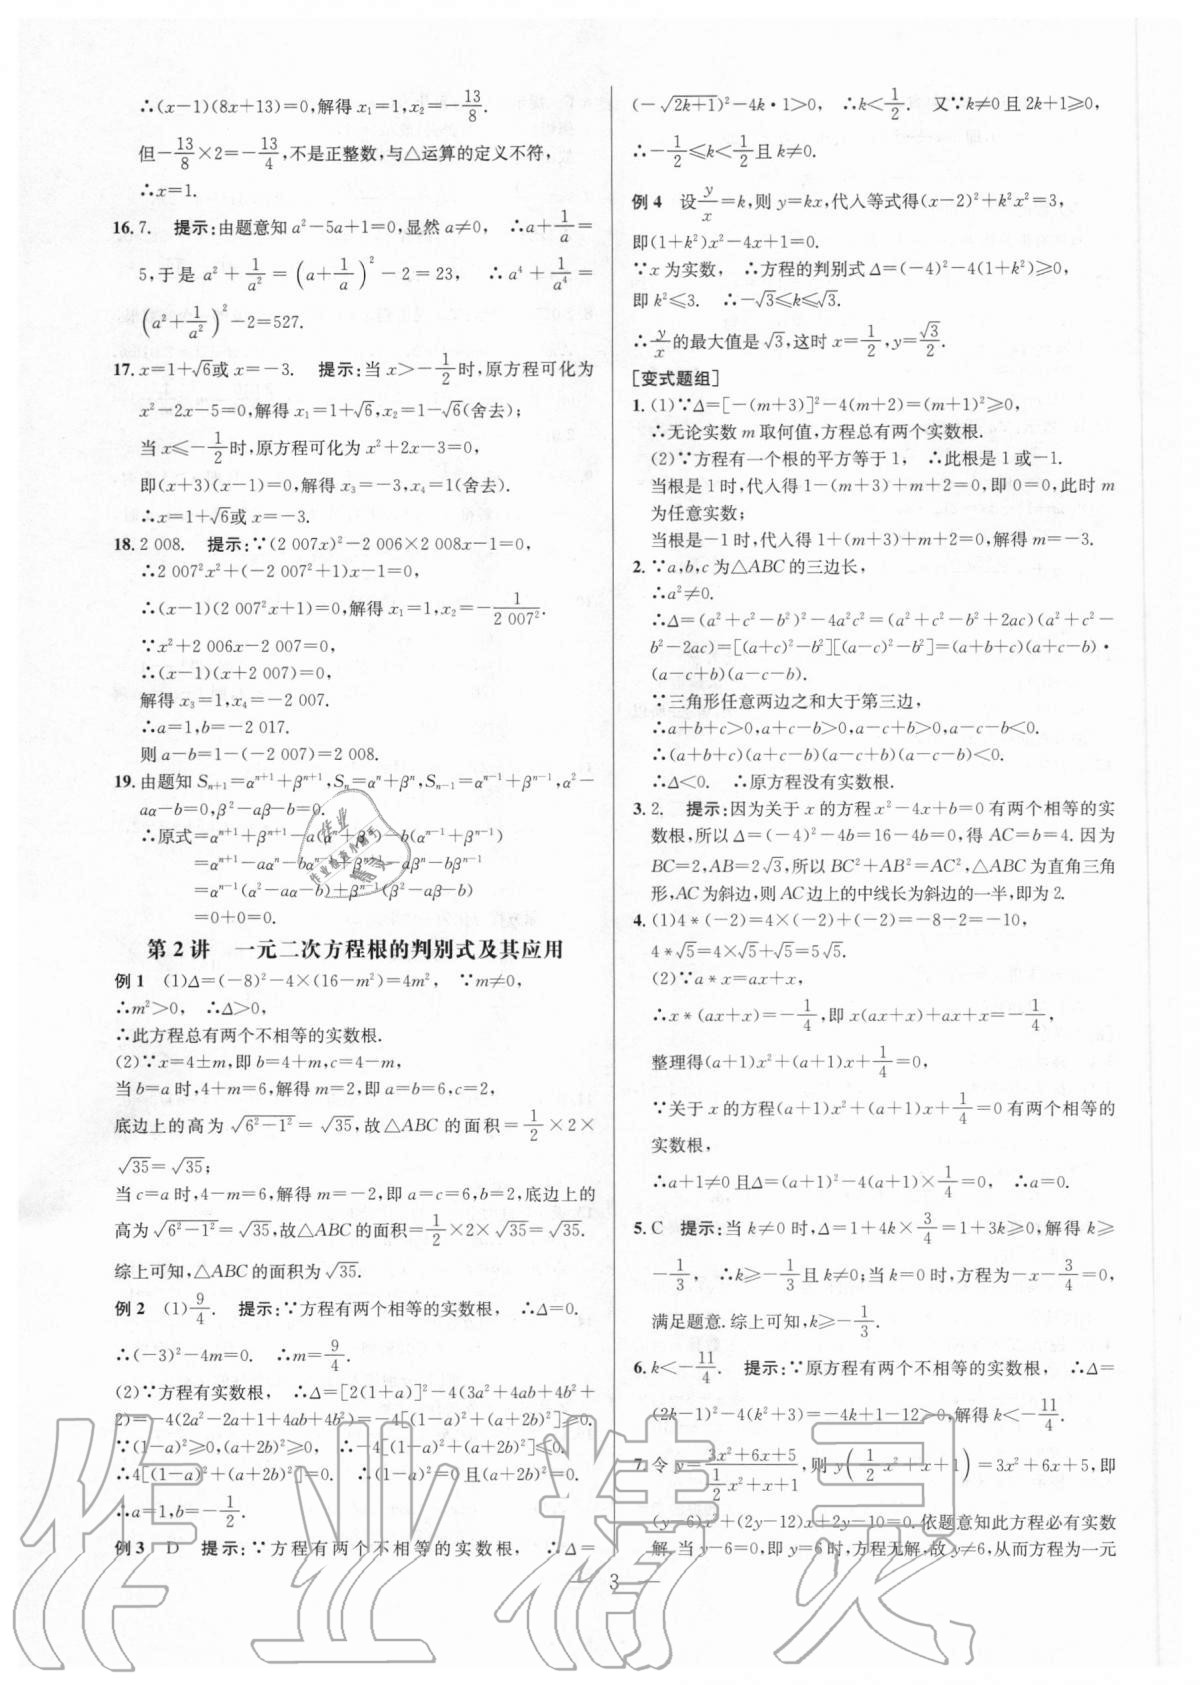 ∴(x−1)(8x+13)=0,解得 x₁=1,x₂=−13/8.
但−13/8×2=−13/4,不是正整数,与△运算的定义不符,
∴x=1.
16. 7. 提示:由题意知 a²−5a+1=0,显然 a≠0, ∴a+1/a=
5,于是 a²+1/a²=(a+1/a)²−2=23, ∴a⁴+1/a⁴=
(a²+1/a²)²−2=527.
17. x=1+√6或 x=−3. 提示:当 x>−1/2时,原方程可化为
x²−2x−5=0,解得 x₁=1+√6,x₂=1−√6(舍去);
当 x≤−1/2时,原方程可化为 x²+2x−3=0,
即(x+3)(x−1)=0,解得 x₃=−3,x₄=1(舍去).
∴x=1+√6或 x=−3.
18. 2 008. 提示:∵(2 007x)²−2 006×2 008x−1=0,
∴2 007²x²+(−2 007²+1)x−1=0,
∴(x−1)(2 007²x+1)=0,解得 x₁=1,x₂=−1/2 007².
∵x²+2 006x−2 007=0,
∴(x−1)(x+2 007)=0,
解得 x₃=1,x₄=−2 007.
∴a=1,b=−2 017.
则 a−b=1−(−2 007)=2 008.
19. 由题知 Sₙ₊₁=αⁿ⁺¹+βⁿ⁺¹,Sₙ=αⁿ+βⁿ,Sₙ₋₁=αⁿ⁻¹+βⁿ⁻¹,α²−
aα−b=0,β²−aβ−b=0.
∴原式=αⁿ⁺¹+βⁿ⁺¹−a(αⁿ+βⁿ)−b(αⁿ⁻¹+βⁿ⁻¹)
=αⁿ⁺¹−aαⁿ−bαⁿ⁻¹+βⁿ⁺¹−aβⁿ−bβⁿ⁻¹
=αⁿ⁻¹(α²−aα−b)+βⁿ⁻¹(β²−aβ−b)
=0+0=0.
第 2 讲 一元二次方程根的判别式及其应用
例 1 (1)Δ=(−8)²−4×(16−m²)=4m², ∵m≠0,
∴m²>0, ∴Δ>0,
∴此方程总有两个不相等的实数根.
(2)∵x=4±m,即 b=4+m,c=4−m,
当 b=a 时,4+m=6,解得 m=2,即 a=b=6,c=2,
底边上的高为 √(6²−1²)=√35,故△ABC 的面积=1/2×2×
√35=√35;
当 c=a 时,4−m=6,解得 m=−2,即 a=c=6,b=2,底边上的
高为 √(6²−1²)=√35,故△ABC 的面积=1/2×2×√35=√35.
综上可知,△ABC 的面积为 √35.
例 2 (1)9/4. 提示:∵方程有两个相等的实数根, ∴Δ=0.
∴(−3)²−4m=0. ∴m=9/4.
(2)∵方程有实数根, ∴Δ=[2(1+a)]²−4(3a²+4ab+4b²+
2)=−4(2a²−2a+1+4ab+4b²)=−4[(1−a)²+(a+2b)²]≥0.
∵(1−a)²≥0,(a+2b)²≥0, ∴−4[(1−a)²+(a+2b)²]≤0.
∴4[(1−a)²+(a+2b)²]=0. ∴(1−a)²=0 且(a+2b)²=0.
∴a=1,b=−1/2.
例 3 D 提示:∵方程有两个不相等的实数根, ∴Δ=
(−√(2k+1))²−4k·1>0, ∴k<1/2. 又∵k≠0 且 2k+1≥0,
∴−1/2≤k<1/2且 k≠0.
例 4 设y/x=k,则 y=kx,代入等式得(x−2)²+k²x²=3,
即(1+k²)x²−4x+1=0.
∵x 为实数, ∴方程的判别式 Δ=(−4)²−4(1+k²)≥0,
即 k²≤3. ∴−√3≤k≤√3.
∴y/x的最大值是 √3,这时 x=1/2,y=√3/2.
[变式题组]
1. (1)∵Δ=[−(m+3)]²−4(m+2)=(m+1)²≥0,
∴无论实数 m 取何值,方程总有两个实数根.
(2)∵方程有一个根的平方等于 1, ∴此根是 1 或−1.
当根是 1 时,代入得 1−(m+3)+m+2=0,即 0=0,此时 m
为任意实数;
当根是−1 时,代入得 1+(m+3)+m+2=0,解得 m=−3.
2. ∵a,b,c 为△ABC 的三边长,
∴a²≠0.
∴Δ=(a²+c²−b²)²−4a²c²=(a²+c²−b²+2ac)(a²+c²−
b²−2ac)=[(a+c)²−b²][(a−c)²−b²]=(a+b+c)(a+c−b)·
(a−c+b)(a−c−b).
∵三角形任意两边之和大于第三边,
∴a+b+c>0,a+c−b>0,a−c+b>0,a−c−b<0.
∴(a+b+c)(a+c−b)(a−c+b)(a−c−b)<0.
∴Δ<0. ∴原方程没有实数根.
3. 2. 提示:因为关于 x 的方程 x²−4x+b=0 有两个相等的实
数根,所以 Δ=(−4)²−4b=16−4b=0,得 AC=b=4. 因为
BC=2,AB=2√3,所以 BC²+AB²=AC²,△ABC 为直角三角
形,AC 为斜边,则 AC 边上的中线长为斜边的一半,即为 2.
4. (1)4*(−2)=4×(−2)+(−2)=−8−2=−10,
4*√5=4×√5+√5=5√5.
(2)∵a*x=ax+x,
∴x*(ax+x)=−1/4,即 x(ax+x)+ax+x=−1/4,
整理得(a+1)x²+(a+1)x+1/4=0,
∵关于 x 的方程(a+1)x²+(a+1)x+1/4=0 有两个相等的
实数根,
∴a+1≠0 且Δ=(a+1)²−4(a+1)×1/4=0, ∴a=0.
5. C 提示:当 k≠0 时,Δ=1+4k×3/4=1+3k≥0,解得 k≥
−1/3, ∴k≥−1/3且 k≠0;当 k=0 时,方程为−x−3/4=0,
满足题意.综上可知,k≥−1/3.
6. k<−11/4. 提示:∵原方程有两个不相等的实数根, ∴Δ=
(2k−1)²−4(k²+3)=−4k+1−12>0,解得 k<−11/4.
7. 令 y=(3x²+6x+5)/(1/2x²+x+1),则 y(1/2x²+x+1)=3x²+6x+5,即
(y−6)x²+(2y−12)x+2y−10=0.依题意知此方程必有实数
解.当 y−6=0,即 y=6时,方程无解,故 y≠6,从而方程为一元
3
作业精灵